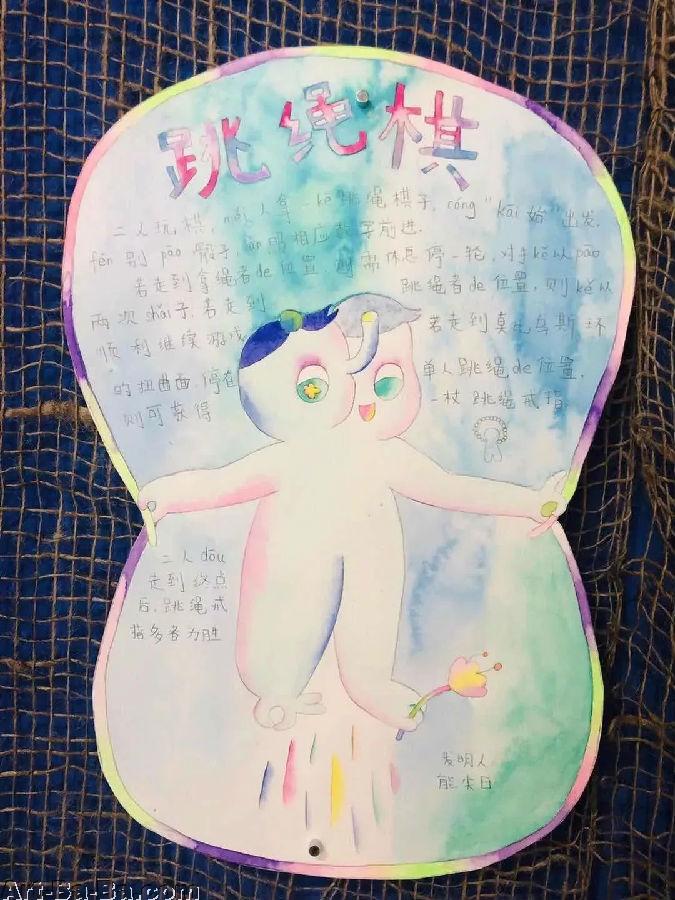 跳绳棋
二人玩棋，每人拿一kē跳绳棋子，cóng“kāi始”出发，
fēn别pāo骰子，àn照相应数字前进.
若走到拿绳者de位置，则需休息停一轮，对手kě以pāo
两次shǎi子，若走到 跳绳者de位置，则kě以
顺利继续游戏 若走到莫比乌斯环
的扭曲面，停在 单人跳绳de位置，
则可获得 一枚跳绳戒指
二人dōu
走到终点
后，跳绳戒
指多者为胜
发明人
能尖日
Art-Ba-Ba.com